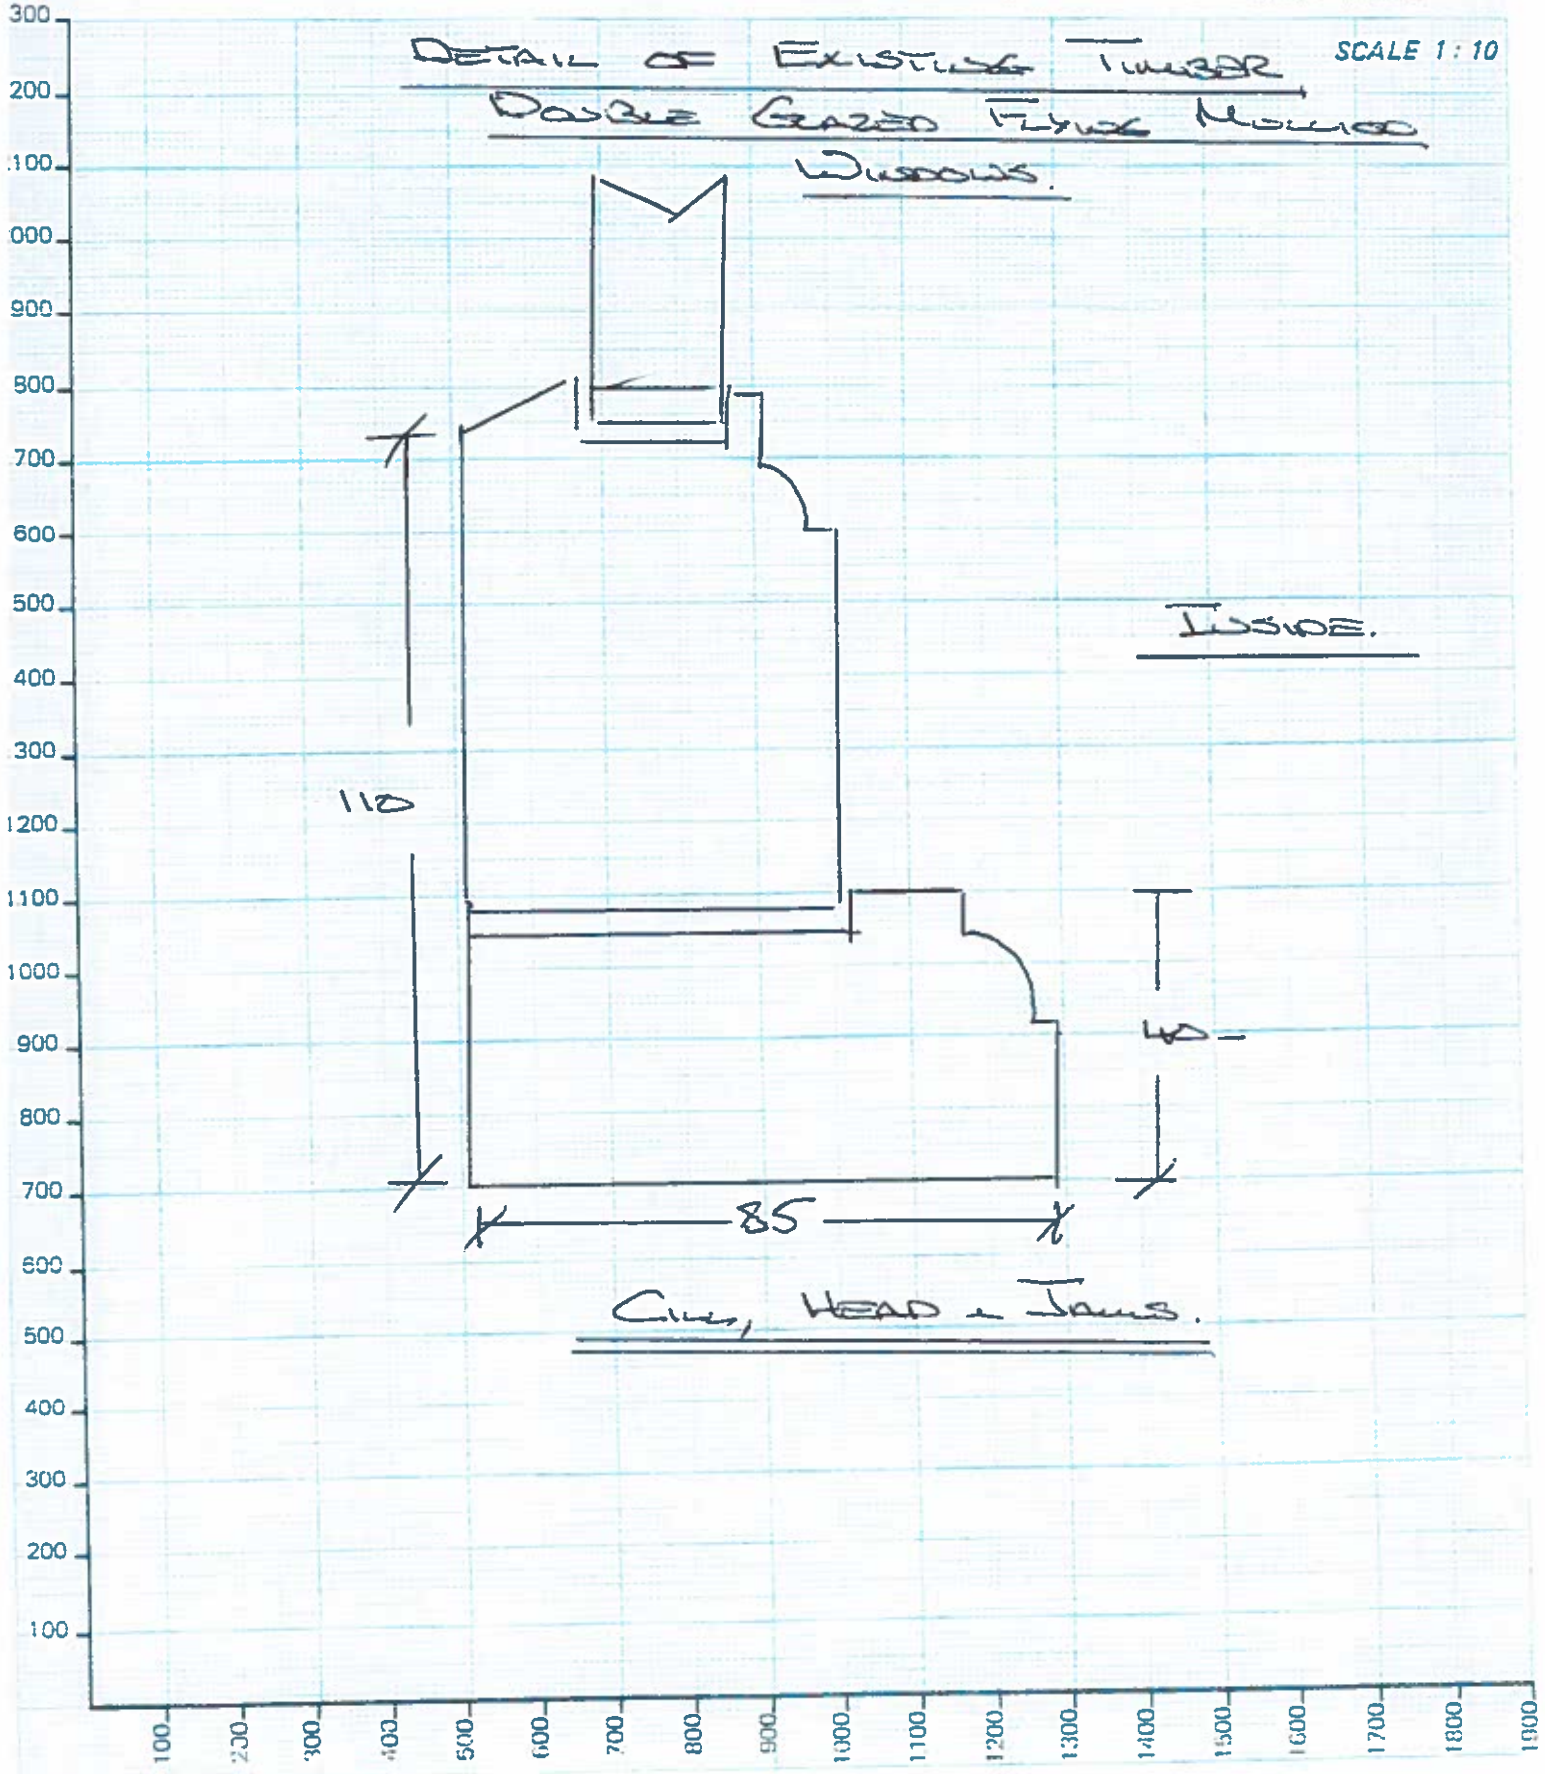 SCALE 1:10
DETAIL OF EXISTING TIMBER
DOUBLE GLAZED FLYING MULLION
WINDOWS.
INSIDE.
110
40
85
CILL, HEAD & JAMBS.
300
200
100
000
900
800
700
600
500
400
300
1200
1100
1000
900
800
700
600
500
400
300
200
100
100 200 300 400 500 600 700 800 900 1000 1100 1200 1300 1400 1500 1600 1700 1800 1900